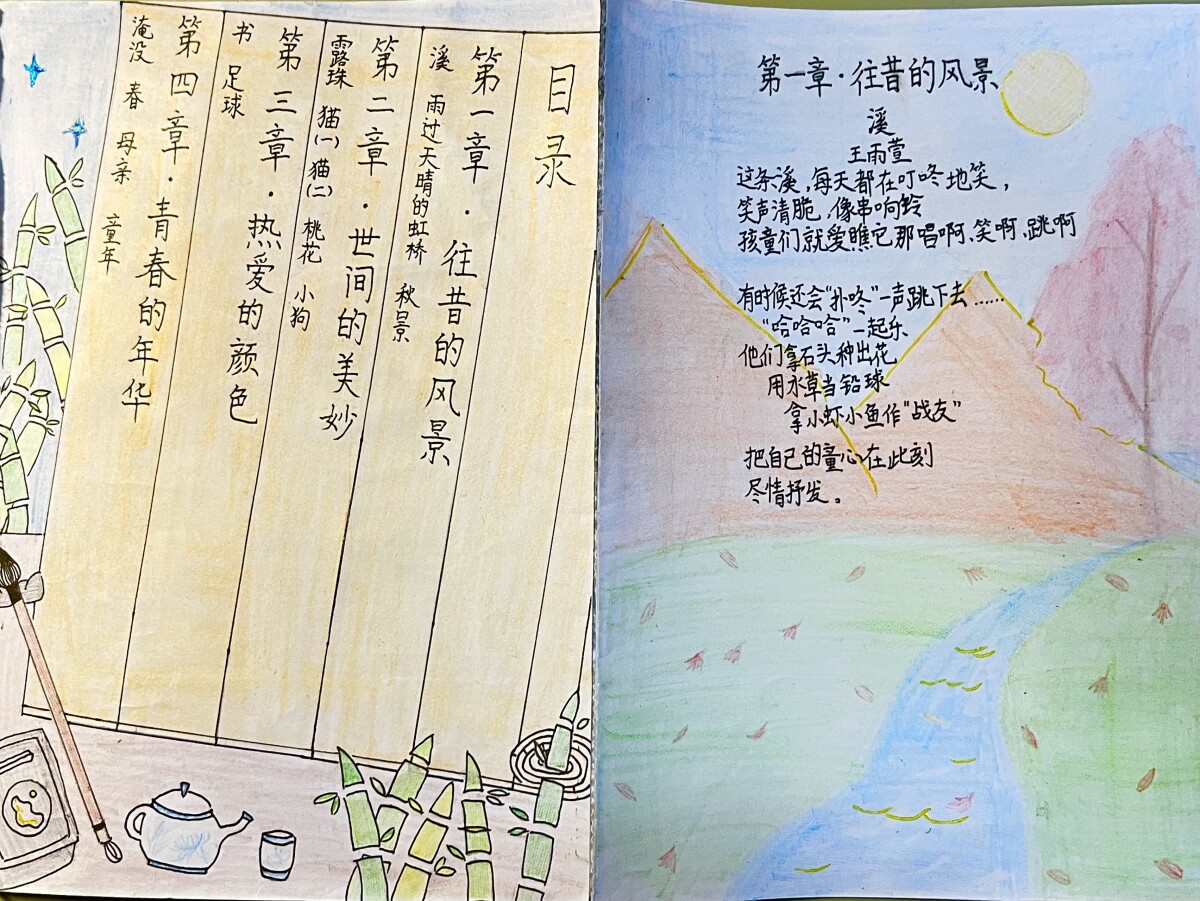 目录
第一章·往昔的风景
溪 雨过天晴的虹桥 秋景
第二章·世间的美妙
露珠 猫(一) 猫(二) 桃花 小狗
第三章·热爱的颜色
书 足球
第四章·青春的年华
淹没 春 母亲 童年
第一章·往昔的风景
溪
王雨萱
这条溪,每天都在叮咚地笑,
笑声清脆,像串响铃
孩童们就爱瞧它那唱啊,笑啊,跳啊
有时候还会“扑咚”一声跳下去……
“哈哈哈”一起乐
他们拿石头种出花
用水草当铅球
拿小虾小鱼作“战友”
把自己的童心在此刻
尽情抒发。